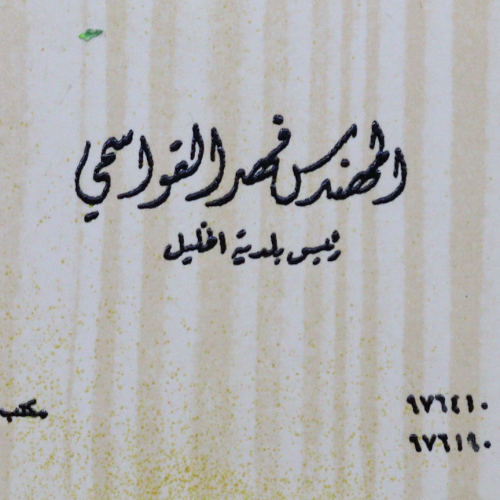 المهندس فهد القواسمي
رئيس بلدية الخليل
مكتب ٩٧٦٤١٠
٩٧٦١٩٠